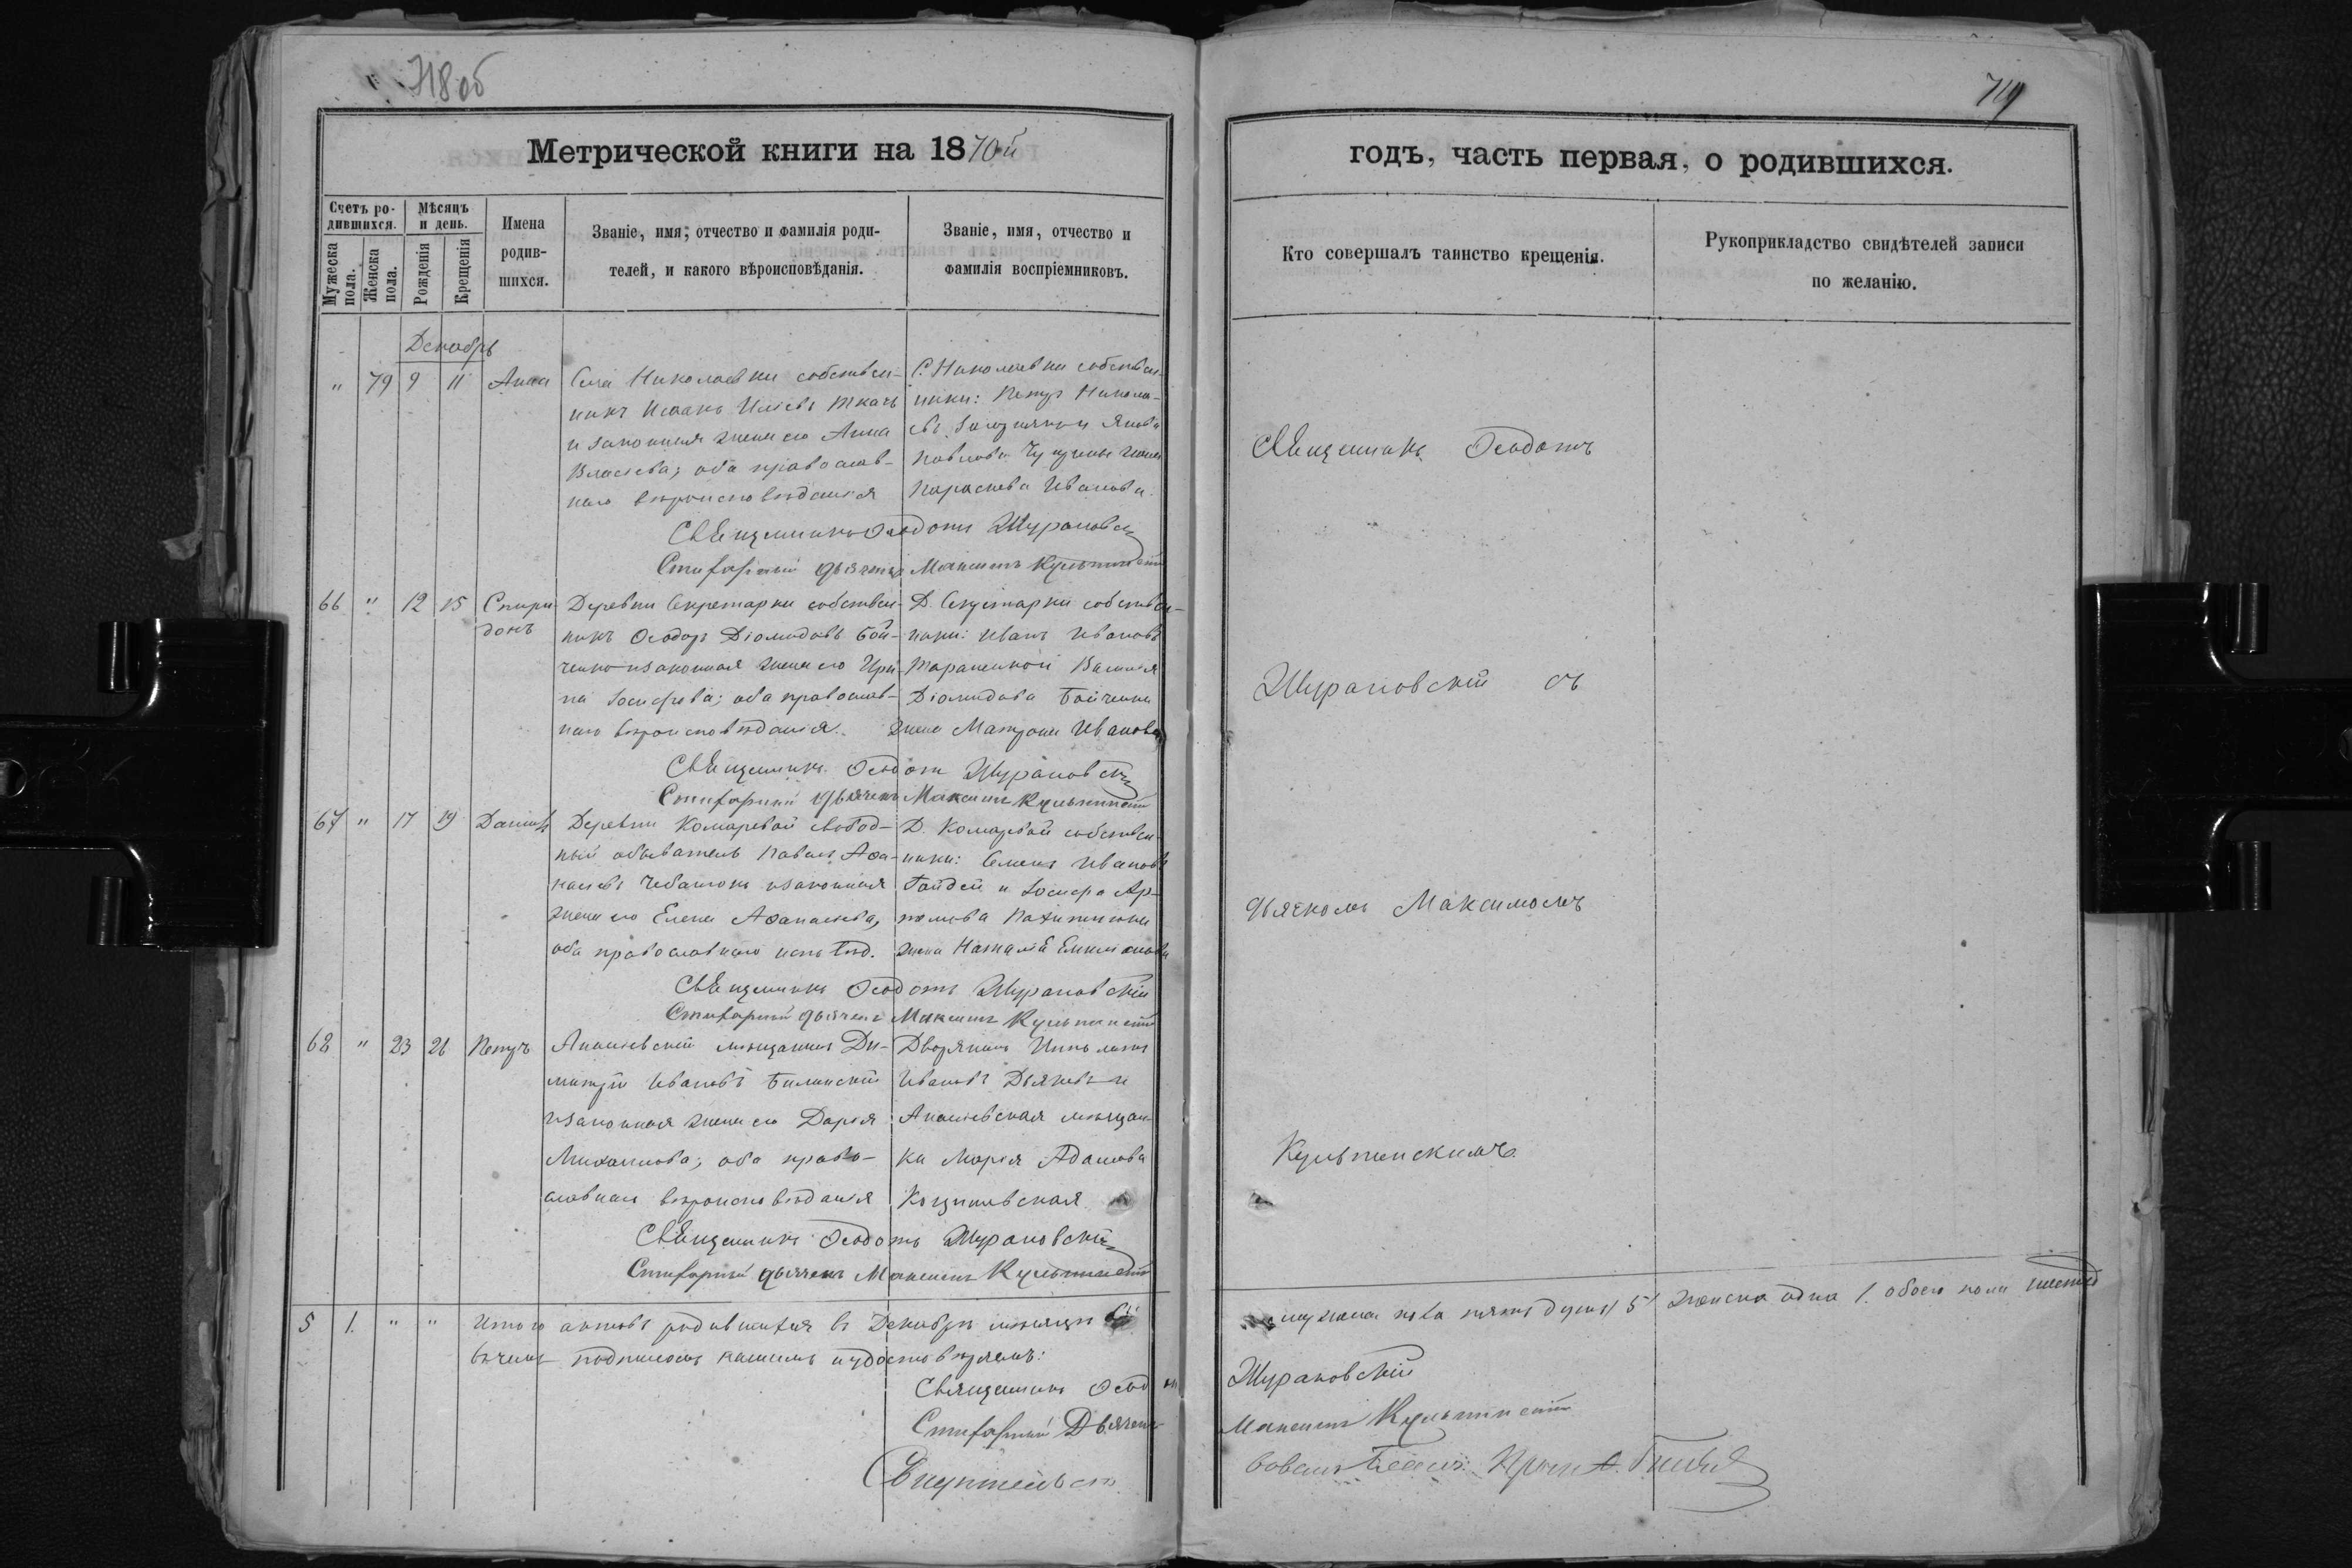 718 об
719
Метрической книги на 1870й
годъ, часть первая, о родившихся.
Счетъ родившихся.
Мужеска пола.
Женска пола.
Мѣсяцъ и день.
Рожденія
Крещенія
Имена родившихся.
Званіе, имя, отчество и фамилія роди-
телей, и какого вѣроисповѣданія.
Званіе, имя, отчество и
фамилія воспріемниковъ.
Кто совершалъ таинство крещенія.
Рукоприкладство свидѣтелей записи
по желанію.
Декабрь
" 79 9 11 Анна
Села Николаевки собствен-
никъ Исаакъ Иліевъ Ткачъ
и законная жена его Анна
Власіева; оба православ-
наго вѣроисповѣданія
С. Николаевки собствен-
ники: Петръ Никола-
евъ и Яковъ
Павлова жена
Параскева Иванова.
Священникъ Ѳеодотъ Шурановскій
Стихарный дьячекъ Максимъ Кульчинскій
66 " 12 15 Спири
донъ
Деревни Секретарки собствен-
никъ Ѳеодоръ Діомидовъ Бой-
ченко и законная жена его Ири
на Іосифова; оба православ-
наго вѣроисповѣданія.
Д. Секретарки собствен-
ники: Иванъ Ивановъ
Тараненко и Василія
Діомидова Бойченка
жена Матрона Иванова
Священникъ Ѳеодотъ Шурановскій
Стихарный дьячекъ Максимъ Кульчинскій
67 " 17 19 Даніилъ
Деревни Комаревой свобод-
ный обыватель Павелъ Аѳа-
насіевъ Чебанюкъ и законная
жена его Елена Аѳанасіева,
оба православнаго исповѣд.
Д. Комаровой собствен-
ники: Семенъ Ивановъ
Гайдей и Іосифа Ар-
жена Наталія Емиліанова
Священникъ Ѳеодотъ Шурановскій
Стихарный дьячекъ Максимъ Кульчинскій
68 " 23 26 Петръ
Ананіевскій мѣщанинъ Ди-
митрій Ивановъ Билинскій
и законная жена его Дарія
Михаилова; оба право-
славнаго вѣроисповѣданія
Дворянинъ Ипполитъ
Ивановъ и
Ананіевская мѣщан-
ка Марія Адамова
Священникъ Ѳеодотъ Шурановскій
Стихарный дьячекъ Максимъ Кульчинскій
Священникъ Ѳеодотъ
Шурановскій съ
дьячкомъ Максимомъ
Кульчинскимъ.
5 1. " " Итого актовъ родившихся въ Декабрѣ мѣсяцѣ
мужеска пола пять душъ 5 женска одна 1. обоего пола шесть 6
въ чемъ подписомъ нашимъ удостовѣряемъ:
Священникъ Ѳеодотъ Шурановскій
Стихарный Дьячекъ Максимъ Кульчинскій